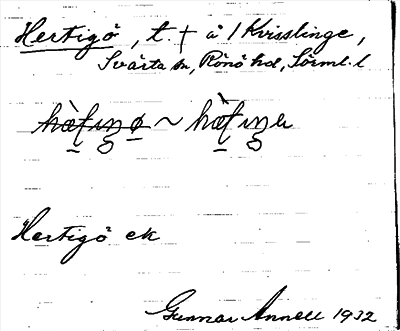 Hertigö, t. † å /Kvisslinge,
Svärta sn, Rönö hd, Sörml. l
Hertigö ek
Gunnar Annell 1932